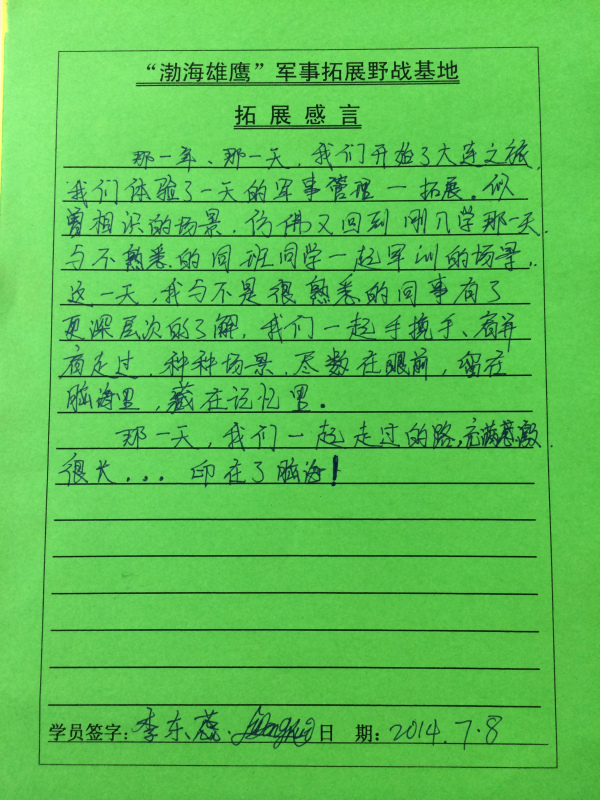 “渤海雄鹰”军事拓展野战基地
拓展感言
那一年、那一天，我们开始了大连之旅，
我们体验了一天的军事管理一拓展。似
曾相识的场景，仿佛又回到刚入学那一天，
与不熟悉的同班同学一起军训的场景，
这一天，我与不是很熟悉的同事有了
更深层次的了解，我们一起手挽手、肩并
肩走过，种种场景，尽数在眼前，留在
脑海里，藏在记忆里。
那一天，我们一起走过的路，充满
很长... 印在了脑海！
学员签字：李东蕊 日 期：2014.7.8